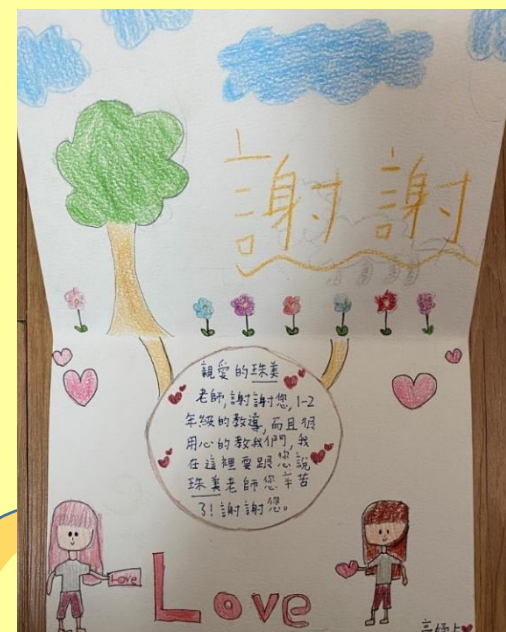 謝謝
親愛的珠美
老師,謝謝您,1-2
年級的教導,而且很
用心的教我們,我
在這裡要跟您說
珠美老師您辛苦
了!謝謝您。
Love
Love